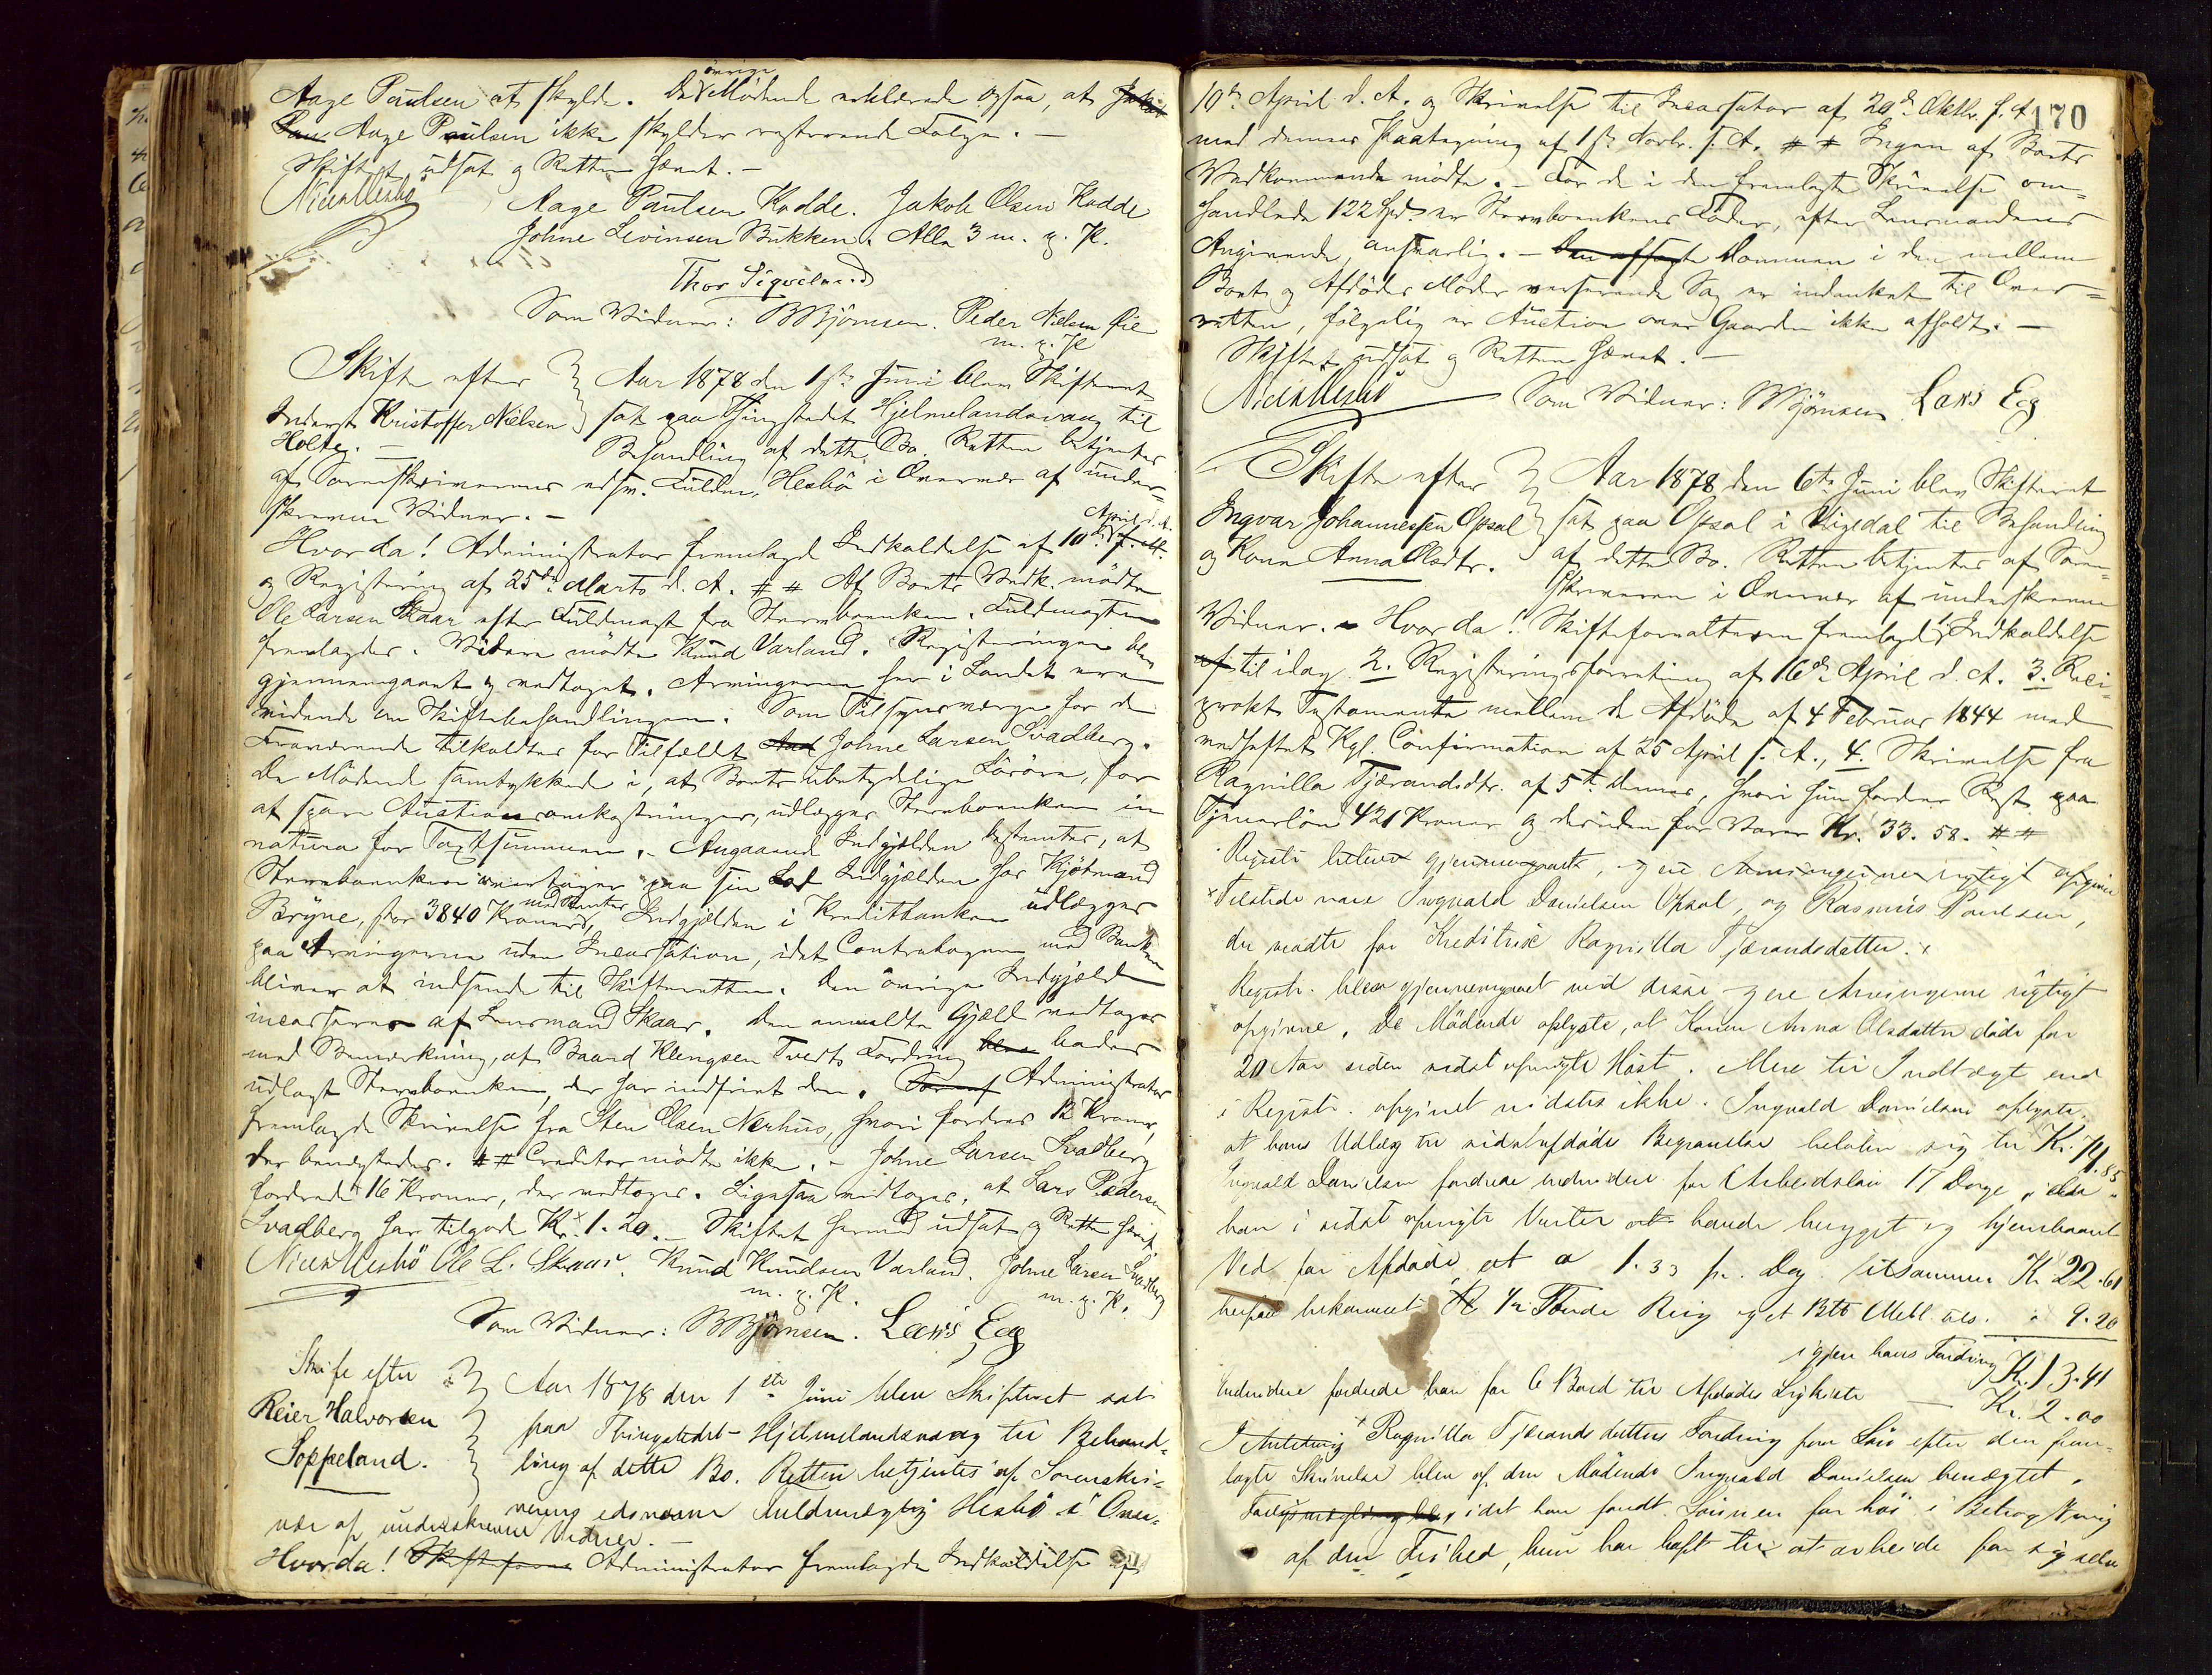 Aage Paulsen at skylde. De øvrige Mødende erklærede ogsaa, at Jakob
Aage Paulsen ikke skylder resterende Følge. —
Skiftet udsat og Retten hævet. —
Aage Paulsen Hodde. Jakob Olsen Hodde
Johne Levinsen Bukken. Alle 3 m. p. P.
Thor Sigvelund
Som Vidner: BBjørnsen. Peder Nielsen Øie
m. p. P.
Skifte efter
Inderst Kristoffer Nielsen
Holte. —
Aar 1878 den 1ste Juni blev Skifteret
sat paa Thingstedet Hjelmelandsvaag til
Behandling af dette Bo. Retten betjentes
af Sorenskriverens edsv. Fuldm. Hesbö i Overvær af under-
skrevne Vidner. —
Hvorda! Administrator fremlagde Indkaldelse af 10de April d. A.
og Registrering af 25de Marts d. A. # # Af Boets Vedk. mødte
Ole Larsen Skaar efter Fuldmagt fra Stervboenken. Fuldmagten
fremlagdes. Videre mødte Knud Varland. Registreringen blev
gjennemgaaet og vedtaget. Arvingerne her i Landet ere
vidende om Skiftebehandlingen. Som Tilsynsværge for de
Fraværende tilkaldtes for Tilfældet Johne Larsen Svadberg.
De Mødende samtykkede i, at Boets ubetydelige Løsøre, for
at spare Auctionsomkostninger, udlægges Stervboenken in
natura for Taxtsummen. – Angaaende Indgjælden bestemtes, at
Stervboenken overtager paa sin Lod Indgjælden hos Kjøbmand
Bryne, stor 3840 Kroner med Renter, Indgjælden i Kreditbanken udlægges
paa Arvingerne uden Incassation, idet Contrabogen med Banken
bliver at indsende til Skifteretten. Den øvrige Indgjæld
incasseres af Lensmand Skaar. Den anmeldte Gjæld vedtoges
med Bemærkning, at Baard Klengsen Tvedts Fordring bedes
udlagt Stervboenken, der har indfriet den. Administrator
fremlagde Skrivelse fra Sten Olsen Nærhus, hvori fordres 12 Kroner,
der benægtedes. # # Creditor mødte ikke. – Johne Larsen Svadberg
fordrede 16 Kroner, der vedtoges. Ligesaa vedtoges, at Lars Pedersen
Svadberg har tilgode Kr. 1.20. – Skiftet herved udsat og Retten hævet
Ole L. Skaar. Knud Knudsen Varland. Johne Larsen Svadberg
m. p. P. m. p. P.
Som Vidner: BBjørnsen. Lars Eeg
Skifte efter
Reier Halvorsen
Soppeland.
Aar 1878 den 1ste Juni blev Skifteret sat
paa Thingstedet Hjelmelandsvaag til Behand-
ling af dette Bo. Retten betjentes af Sorenskri-
verens edsvorne Fuldmægtig Hesbö i Over-
vær af underskrevne Vidner. —
Hvorda! Skiftefor Administrator fremlagde Indkaldelse af
170
10de April d. A. og Skrivelse til Incassator af 20de Oktbr. f. A.
med dennes Paategning af 1ste Novbr. f. A. # # Ingen af Boets
Vedkommende mødte. – For de i den fremlagte Skrivelse om-
handlede 122 Spd. er Stervboenkens Fader, efter Lensmandens
Angivende, ansvarlig. – Den afsagte Dommen i den mellem
Boet og Afdødes Moder verserende Sag er indanket til Over-
retten, følgelig er Auction over Gaarden ikke afholdt. —
Skiftet udsat og Retten hævet. —
Som Vidner: BBjørnsen Lars Eeg
Skifte efter
Ingvar Johannessen Opsal
og Kone Anna Olsdtr.
Aar 1878 den 6te Juni blev Skifteret
sat paa Opsal i Vigedal til Behandling
af dette Bo. Retten betjentes af Soren-
skriveren i Overvær af underskrevne
Vidner. – Hvorda! Skifteforvalteren fremlagde 1. Indkaldelse
af til idag 2. Registreringsforretning af 16de April d. A. 3. Reci-
prokt Testamente mellem de Afdøde af 4 Februar 1844 med
vedheftet Kgl. Confirmation af 25 April s. A., 4. Skrivelse fra
Ragnilla Tjærandsdtr. af 5te dennes, hvori hun fordrer Rest paa
Tjenerløn 421 Kroner og desuden for Varer Kr. 33.58. # #
Registr. blev gjennemgaaet, og ere Arvingerne rigtigt opgivne
× Tilstede vare Ingvald Danielsen Opsal, og Rasmus Poulsen,
der mødte for Kreditrix Ragnilla Tjærandsdatter. ×
Registr. blev gjennemgaaet med disse og ere Arvingerne rigtigt
opgivne. De Mødende oplyste, at Konen Anna Olsdatter døde for
20 Aar siden sidst afvigte Høst. Mere til Indtægt end
i Registr. opgivet vidstes ikke. Ingvald Danielsen oplyste,
at hans Udlæg til sidstafdødes Begravelse beløber sig til Kr. 74.85
Ingvald Danielsen fordrede endvidere for Arbeidsløn 17 Dage, i det
han i sidst afvigte Vinter havde hugget og hjembaaret
Ved for Afdøde, at a 1.33 pr. Dag tilsammen Kr. 22.61
herpaa bekommet 1/2 Tønde Byg og et Mebl " 9.20
igjen hans Fordring Kr. 13.41
Endvidere fordrede han for 6 Bord til Afdødes Ligkiste — Kr. 2.00
I Anledning Ragnilla Tjærandsdatters Fordring paa Løn efter den frem-
lagte Skrivelse blev af den Mødende Ingvald Danielsen benægtet,
idet han fandt Lønnen for høi i Betragtning
af den Frihed, hun har havt til at arbeide for sig selv